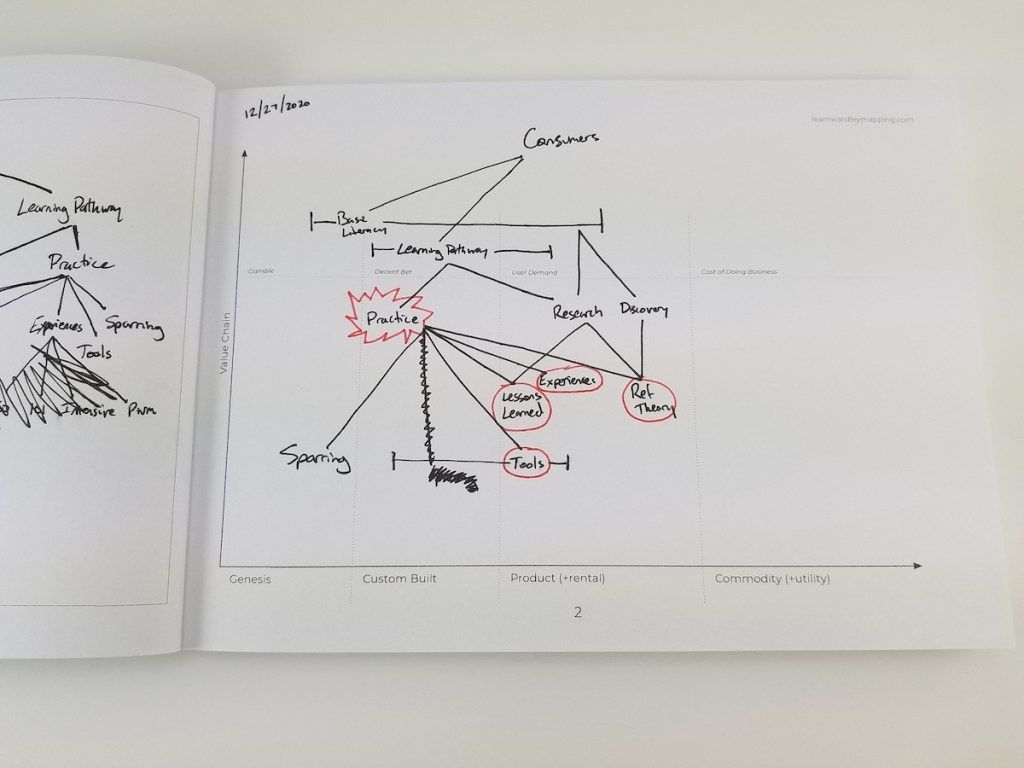 Learning Pathway
Practice
Experiences
Sparring
Tools
Intensive
12/27/2020
learnwardleymapping.com
Consumers
Base
Literacy
Learning Pathway
Gamble
Decent Bet
User Demand
Cost of Doing Business
Practice
Research
Discovery
Value Chain
Lessons
Learned
Experiences
Ref
Theory
Sparring
Tools
Genesis
Custom Built
Product (+rental)
Commodity (+utility)
2